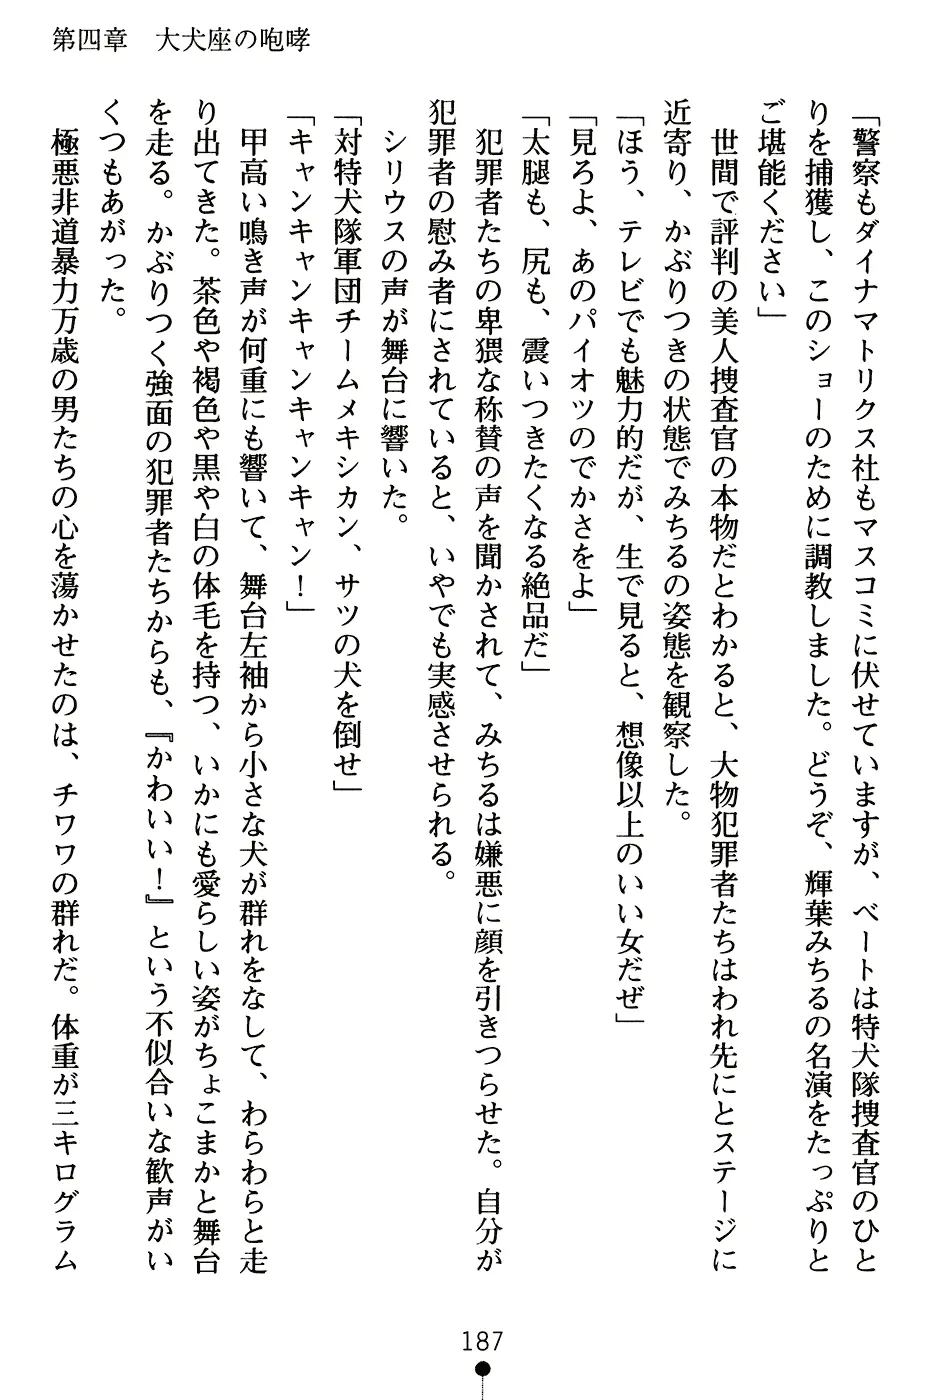 第四章　大犬座の咆哮
「警察もダイナマトリクス社もマスコミに伏せていますが、ベートは特犬隊捜査官のひと
りを捕獲し、このショーのために調教しました。どうぞ、輝葉みちるの名演をたっぷりと
ご堪能ください」
　世間で評判の美人捜査官の本物だとわかると、大物犯罪者たちはわれ先にとステージに
近寄り、かぶりつきの状態でみちるの姿態を観察した。
「ほう、テレビでも魅力的だが、生で見ると、想像以上のいい女だぜ」
「見ろよ、あのパイオツのでかさをよ」
「太腿も、尻も、震いつきたくなる絶品だ」
　犯罪者たちの卑猥な称賛の声を聞かされて、みちるは嫌悪に顔を引きつらせた。自分が
犯罪者の慰み者にされていると、いやでも実感させられる。
　シリウスの声が舞台に響いた。
「対特犬隊軍団チームメキシカン、サツの犬を倒せ」
「キャンキャンキャンキャンキャン！」
　甲高い鳴き声が何重にも響いて、舞台左袖から小さな犬が群れをなして、わらわらと走
り出てきた。茶色や褐色や黒や白の体毛を持つ、いかにも愛らしい姿がちょこまかと舞台
を走る。かぶりつく強面の犯罪者たちからも、『かわいい！』という不似合いな歓声がい
くつもあがった。
　極悪非道暴力万歳の男たちの心を蕩かせたのは、チワワの群れだ。体重が三キログラム
187